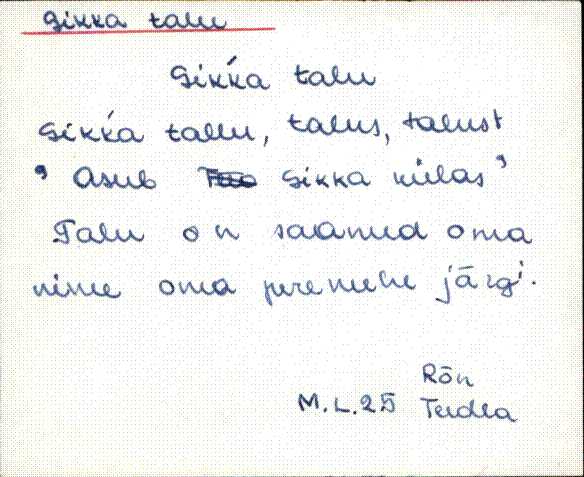 Sikka talu
Sikḱa talu
Sikḱa tallu, talus, talust
" Asub Sikka külas "
Talu on saanud oma
nime oma peremehe järgi.
Rõn
M.L.25 Teedla